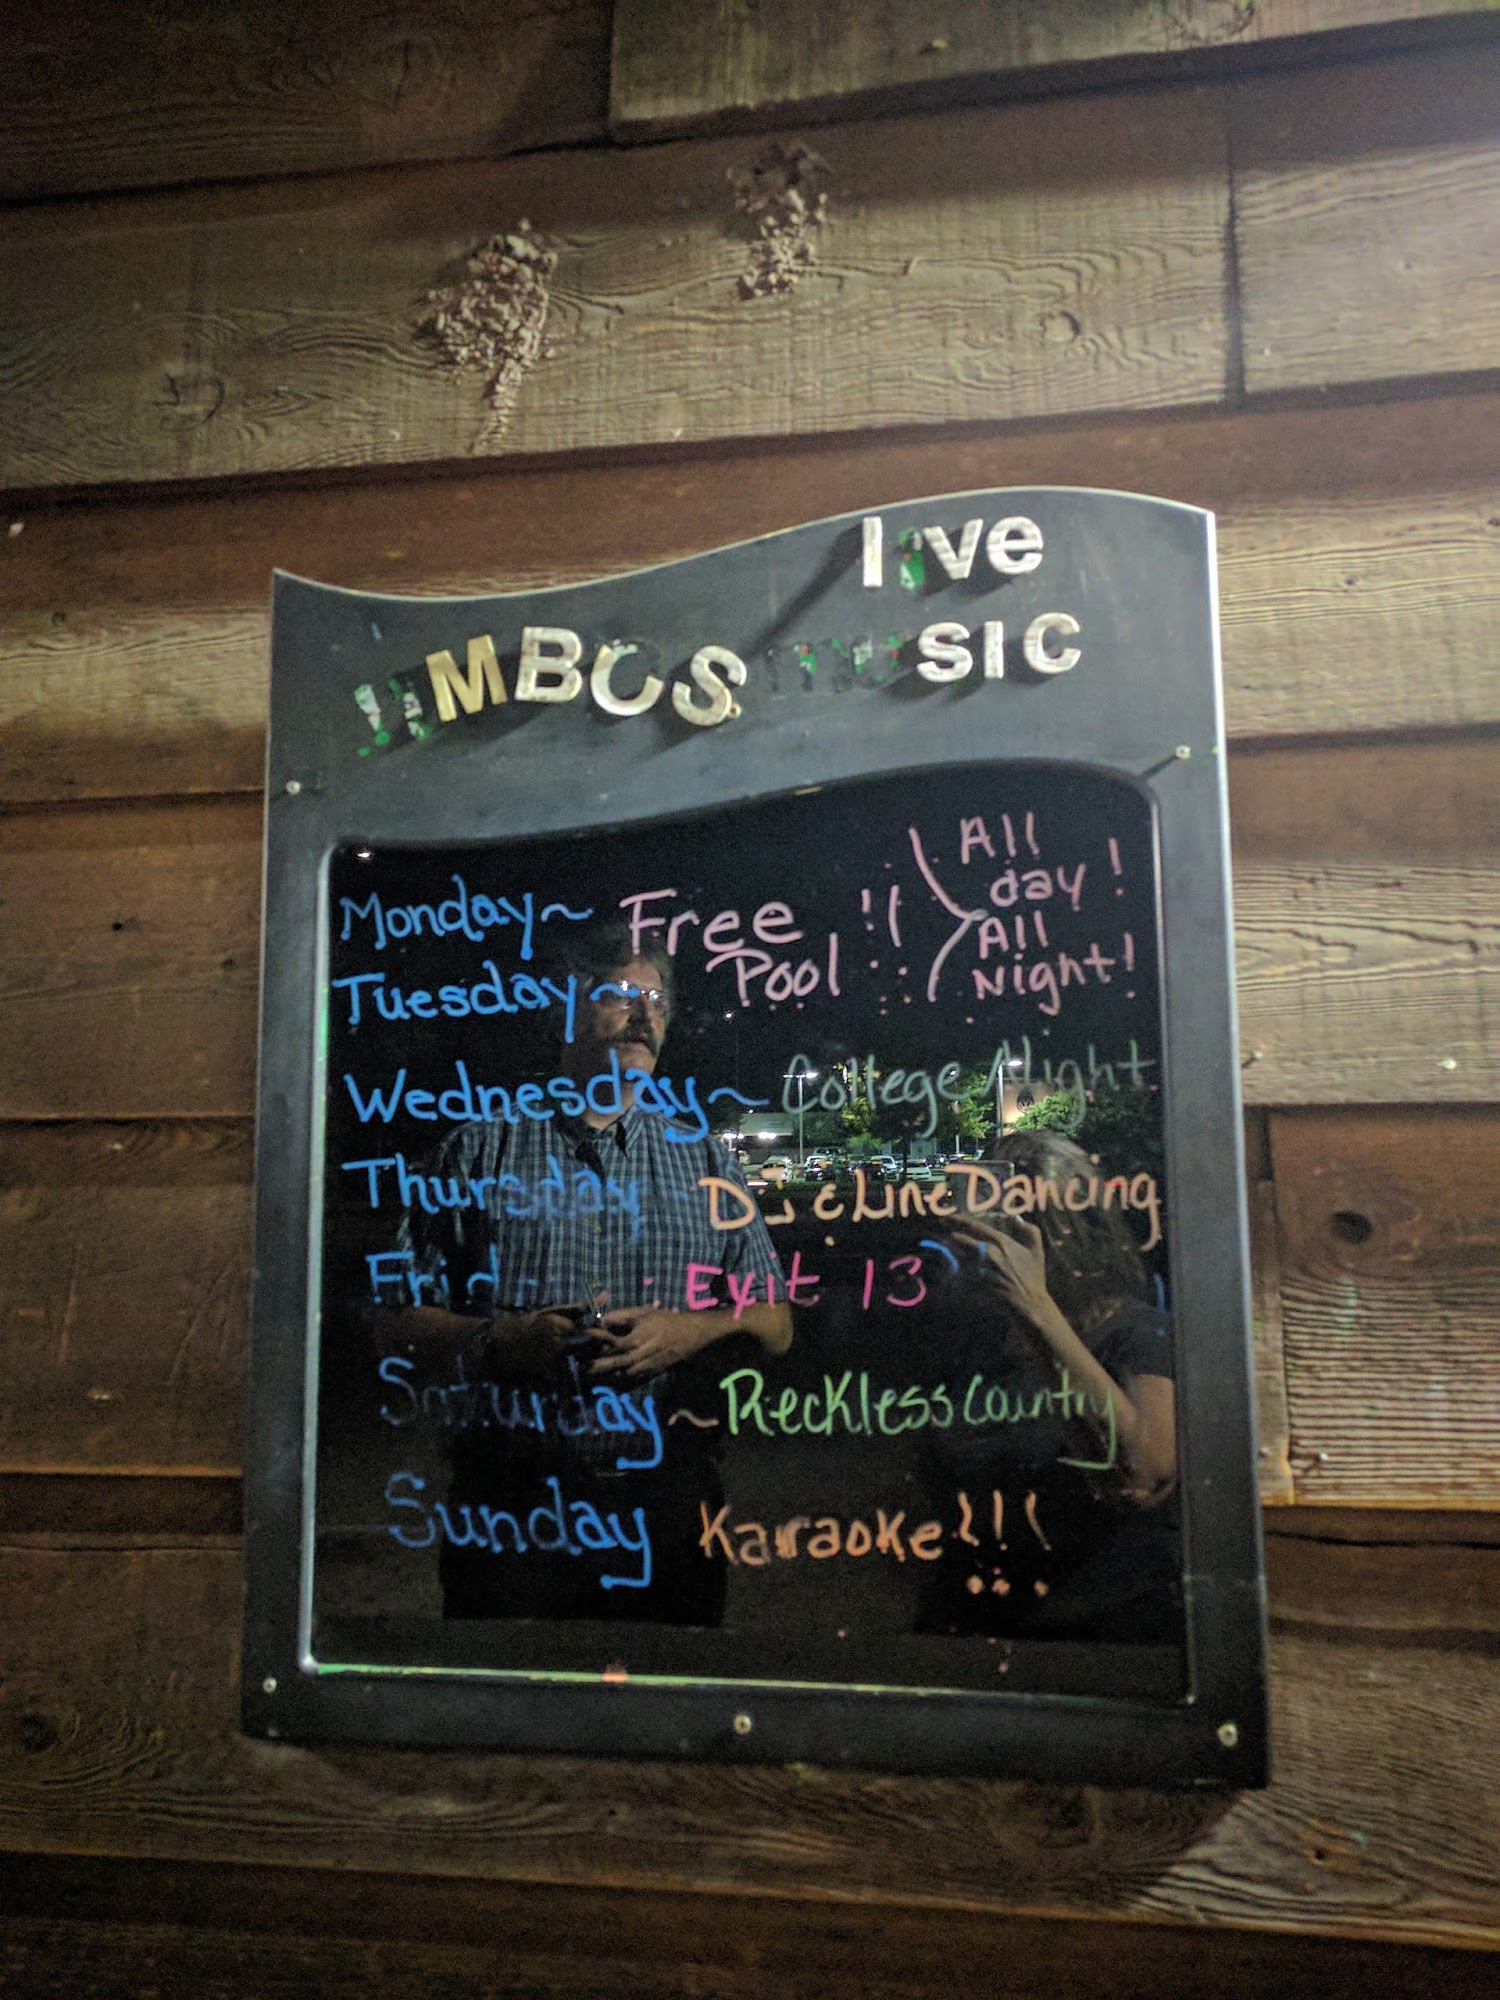 live
MBOS music
Monday~ Free !! All day!
Tuesday~ Pool All Night!
Wednesday~ College Night
Thursday DJ & Line Dancing
Frid Exit 13
Saturday~ Reckless Country
Sunday Karaoke!!!